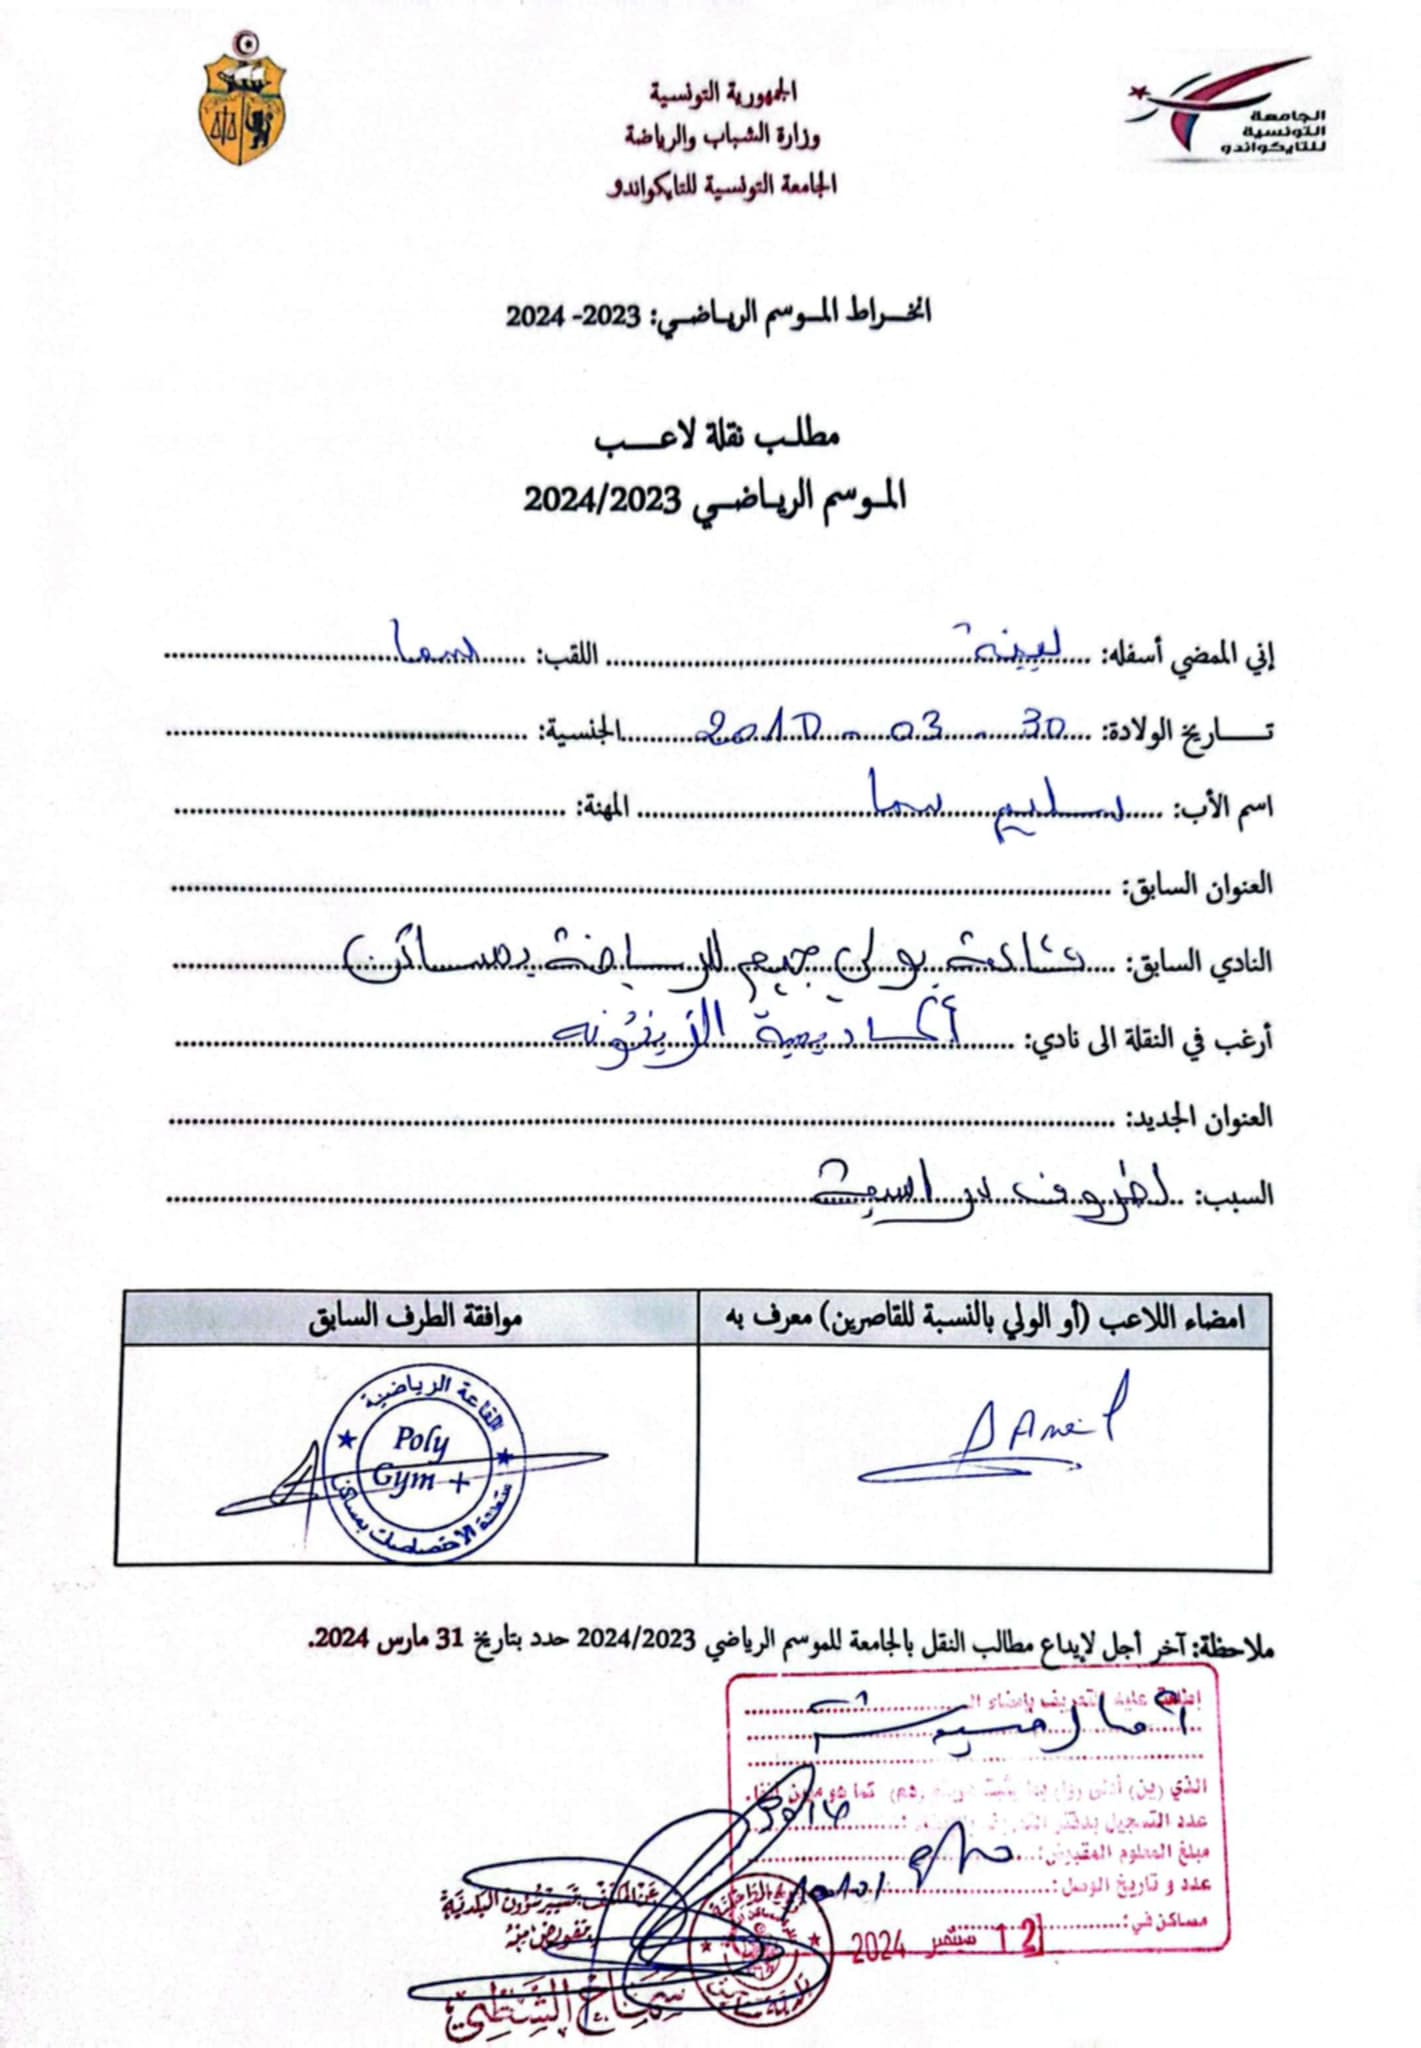 الجمهورية التونسية
وزارة الشباب والرياضة
الجامعة التونسية للتايكواندو
الجامعة
التونسية
للتايكواندو
انخراط الموسم الرياضي: 2023- 2024
مطلب نقلة لاعب
الموسم الرياضي 2024/2023
إني الممضي أسفله: لبينة اللقب: سما
تاريخ الولادة: 30 - 03 - 2010 الجنسية:
اسم الأب: سليم سما المهنة:
العنوان السابق:
النادي السابق: بولي جيم للرياضة بمساكن
أرغب في النقلة الى نادي: أكاديمية الزيتونة
العنوان الجديد:
السبب: لظروف دراسية
امضاء اللاعب (أو الولي بالنسبة للقاصرين) معرف به
موافقة الطرف السابق
القاعة الرياضية
Poly
Gym +
متعددة الاختصاصات بمساكن
ملاحظة: آخر أجل لإيداع مطالب النقل بالجامعة للموسم الرياضي 2024/2023 حدد بتاريخ 31 مارس 2024.
التعريف بإمضاء
عدد التسجيل بدفتر
مبلغ المعلوم المقبوض:
عدد و تاريخ الوصل:
مساكن في: 12 سبتمبر 2024
عن المكلف بتسيير شؤون البلدية
بتفويض منه
سماح الشطي